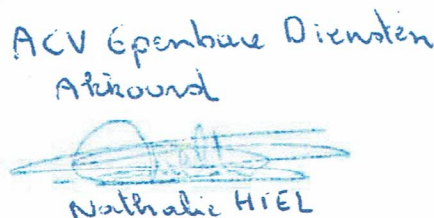 ACV Openbare Diensten
Akkoord
Nathalie HIEL